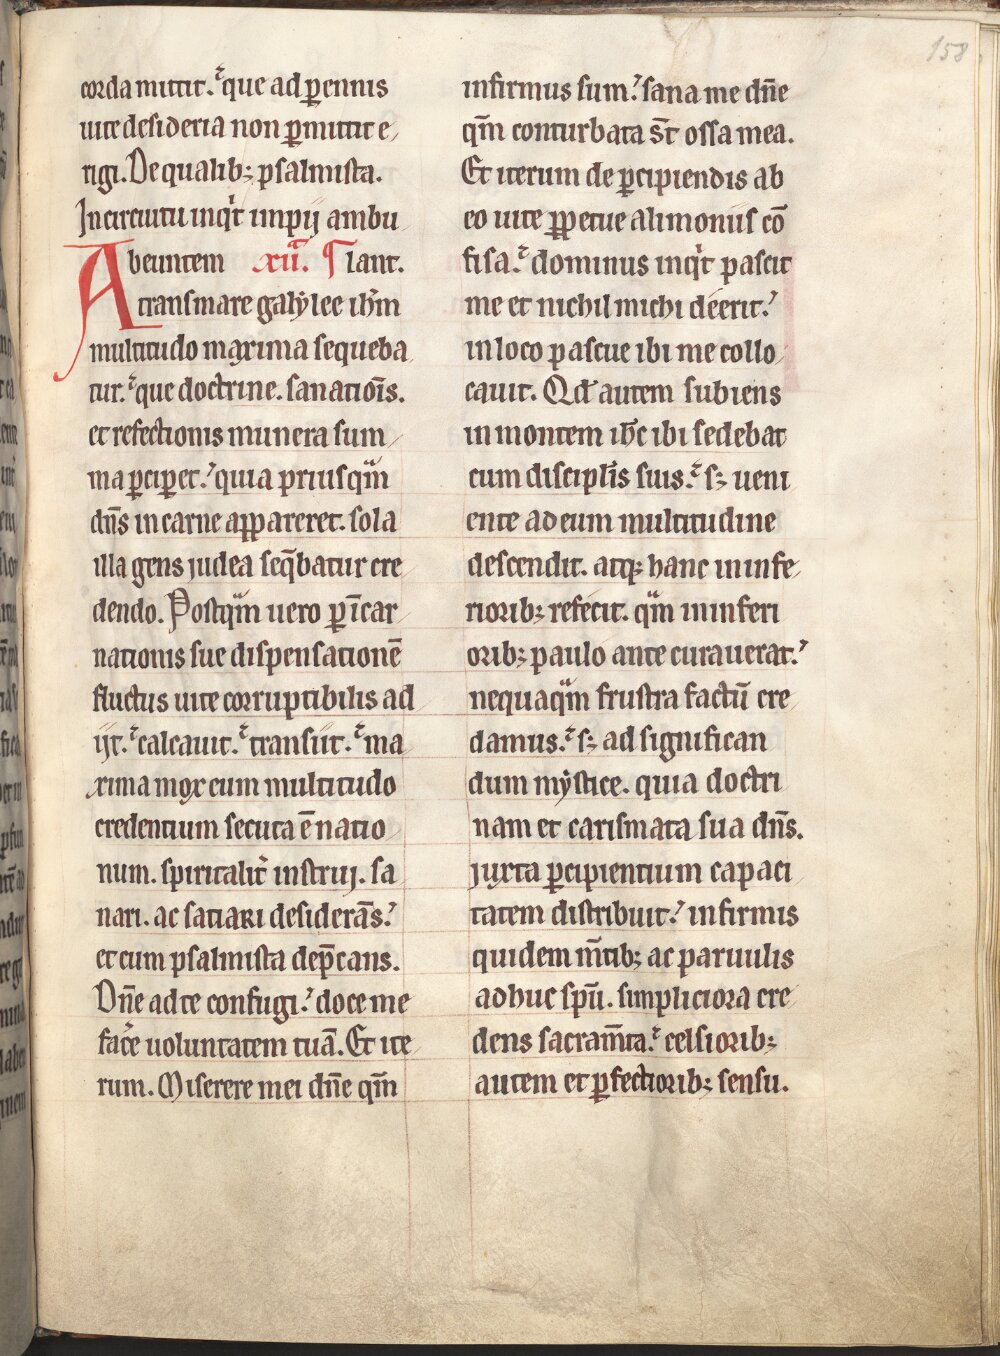 158
corda mittit. que ad p̱ennis
uite desideria non p̱mittit e/
rigi. De qualib; psalmista.
In circuitu inq't impij ambu
Abeuntem xii. ¶ lant.
transmare galylee ih̄m
multitudo maxima sequeba
tur. que doctrine. sanatiōis.
et refectionis munera sum/
ma p̱cip̱et. quia priusqm̄
dn̄s in carne ap̱p̱areret. sola
illa gens judea seq̄batur cre/
dendo. Postqm̄ uero p̱ īcar/
nationis sue dispensationē
fluctus uite corruptibilis ad/
ijt. calcauit. transiit. ma/
xima mox cum multitudo
credentium secuta ē natio/
num. spiritalit' instruj. sa/
nari. ac satiari desiderās.
et cum psalmista dep̄cans.
Dn̄e ad te confugi. doce me
fac'e uoluntatem tuā. Et ite/
rum. Miserere mei dn̄e qm̄
infirmus sum. sana me dn̄e
qm̄ conturbata s̄t ossa mea.
Et iterum de p̱cipiendis ab
eo uite p̱p̱etue alimoniis cō/
fisa. dominus inq't pascit
me et nichil michi deerit.
in loco pascue ibi me collo/
cauit. Qd̄ autem subiens
in montem ih̄c ibi sedebat
cum discipl̄is suis. s; ueni/
ente ad eum multitudine
descendit. atq; hanc in infe/
riorib; refecit. qm̄ in inferi
orib; paulo ante curauerat.
nequaqm̄ frustra factū cre/
damus. s; ad significan
dum mystice. quia doctri/
nam et carismata sua dn̄s.
juxta p̱cipientium capaci/
tatem distribuit. infirmis
quidem m̄tib; ac paruulis
adhuc sp̄u. simpliciora cre/
dens sacram̄ta. celsiorib;
autem et p̱fectiorib; sensu.